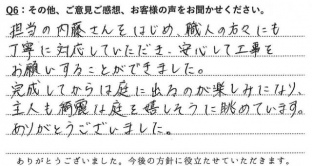 Q6：その他、ご意見ご感想、お客様の声をお聞かせください。
担当の内藤さんをはじめ、職人の方々にも
丁寧に対応していただき、安心して工事を
お願いすることができました。
完成してからは庭に出るのが楽しみになり、
主人も綺麗な庭を嬉しそうに眺めています。
ありがとうございました。
ありがとうございました。今後の方針に役立たせていただきます。